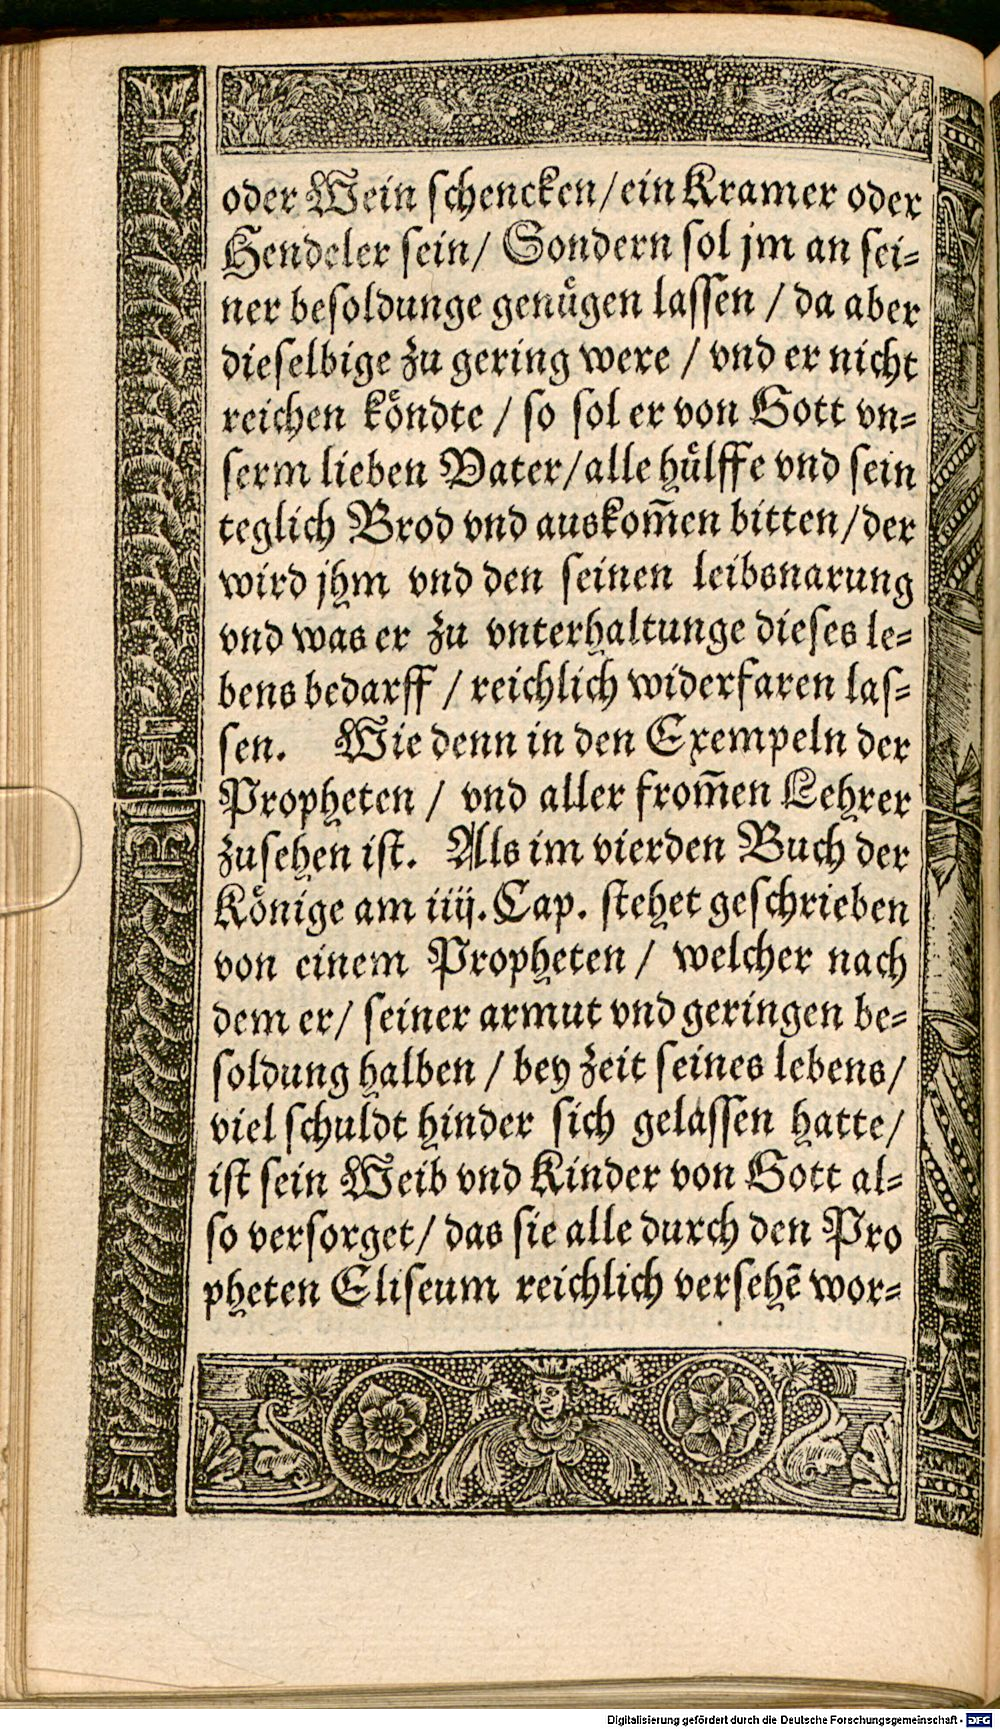 oder Wein schencken/ein Kramer oder
Hendeler sein/ Sondern sol jm an sei=
ner besoldunge genuͤgen lassen / da aber
dieselbige zu gering were / vnd er nicht
reichen koͤndte / so sol er von Gott vn=
serm lieben Vater/alle huͤlffe vnd sein
teglich Brod vnd auskom̃en bitten/der
wird jhm vnd den seinen leibsnarung
vnd was er zu vnterhaltunge dieses le=
bens bedarff / reichlich widerfaren las=
sen. Wie denn in den Exempeln der
Propheten / vnd aller from̃en Lehrer
zusehen ist. Als im vierden Buch der
Koͤnige am iiij. Cap. stehet geschrieben
von einem Propheten / welcher nach
dem er/ seiner armut vnd geringen be=
soldung halben / bey zeit seines lebens/
viel schuldt hinder sich gelassen hatte/
ist sein Weib vnd Kinder von Gott al=
so versorget/ das sie alle durch den Pro
pheten Eliseum reichlich versehẽ wor=
Digitalisierung gefördert durch die Deutsche Forschungsgemeinschaft - DFG